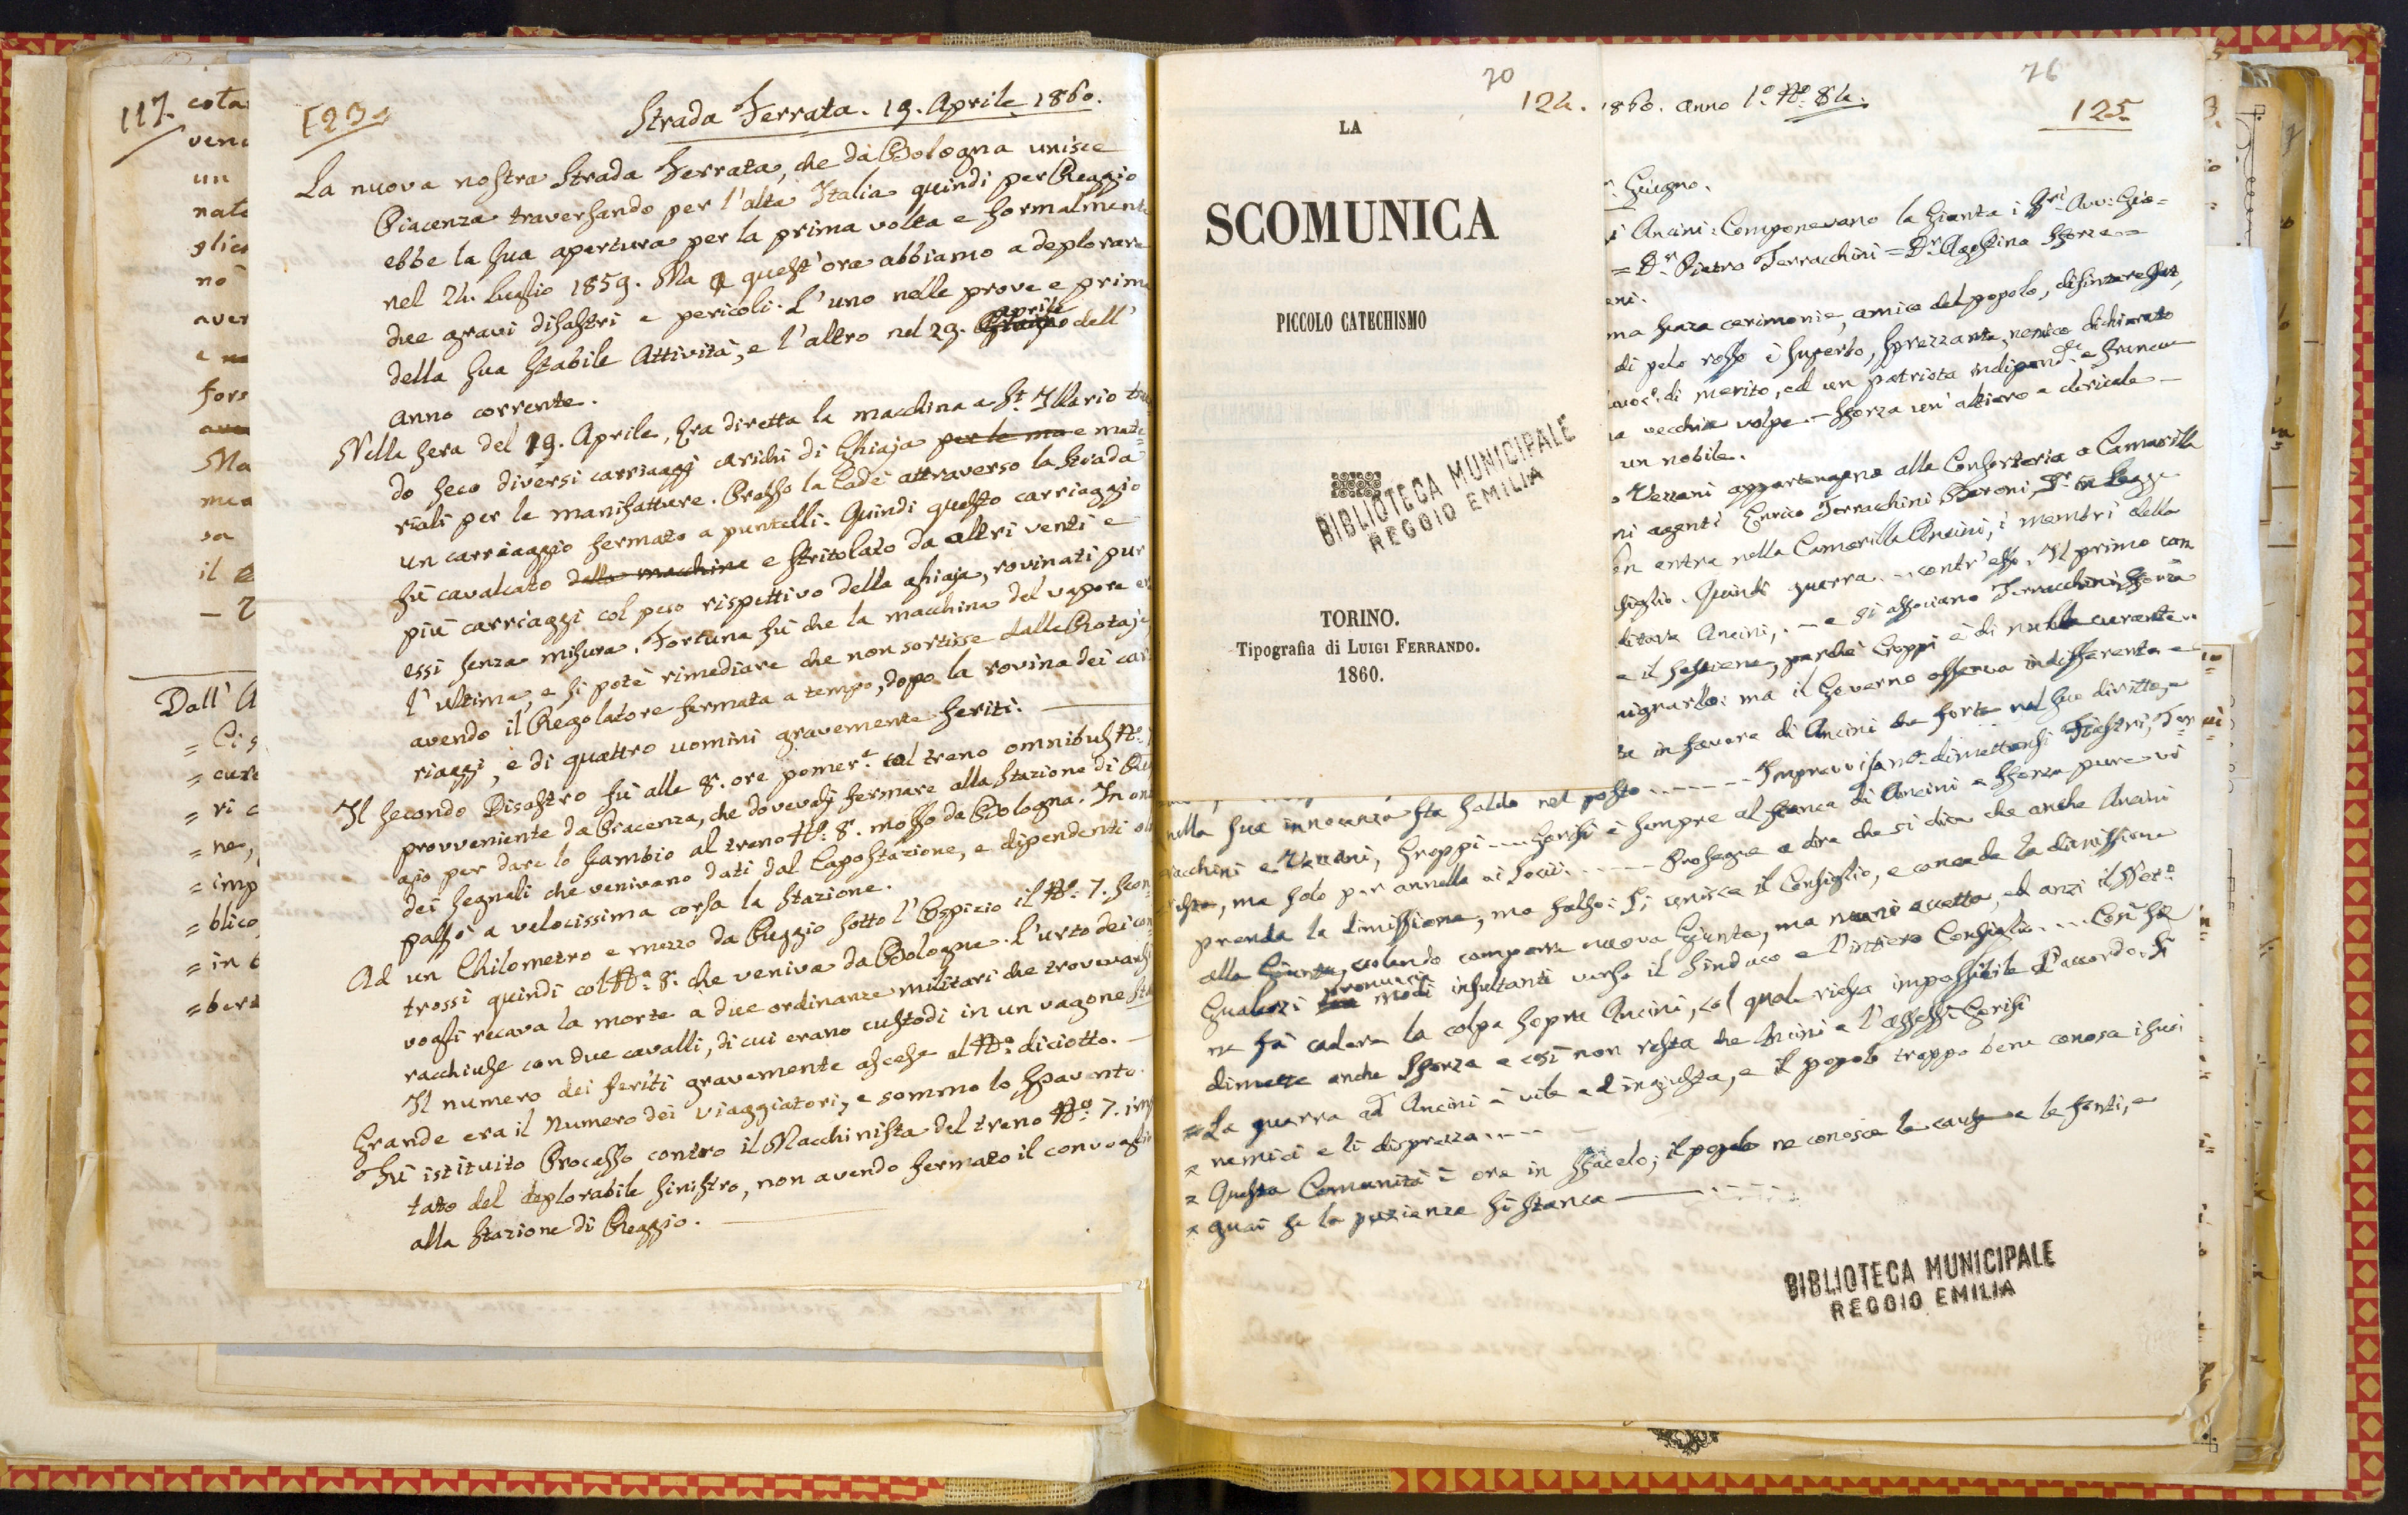 117.
cota
vene
un
nate
glies
no
aver
fors
Ma
mea
sa
il
Dall' A
= Ci s
= cure
= ri c
= ne,
= imp
= blico
= in
= bert
123
Strada Ferrata. 19. Aprile 1860.
La nuova nostra Strada Ferrata, che da Bologna unisce
Piacenza traversando per l'alta Italia quindi per Reggio
ebbe la sua apertura per la prima volta e formalmente
nel 24. Luglio 1859. Ma a quest'ora abbiamo a deplorare
due gravi disastri e pericoli. L'uno nelle prove e prima
della sua stabile Attività, e l'altro nel 29. aprile dell'
anno corrente.
Nella sera del 19. Aprile, era diretta la macchina a St. Illario tra
do seco diversi carriaggi carichi di Ghiaja per le ma e mate=
riali per le manifatture. Presso la Cadè attraverso la strada
un carriaggio fermato a puntelli. Quindi questo carriaggio
fù cavalcato dalla macchina e stritolato da altri venti e
più carriaggi col peso rispettivo della ghiaja, rovinati pur
essi senza misura. Fortuna fù che la macchina del vapore er
l'ultima, e si potè rimediare che non sortisse dalle Rotaje,
avendo il Regolatore fermata a tempo, dopo la rovina dei car=
riaggi, e di quattro uomini gravemente feriti.
Il secondo Disastro fù alle 8. ore pomer.e col treno omnibus No.
provveniente da Piacenza, che dovevasi fermare alla Stazione di Reg
gio per dare lo scambio al treno No. 8. mosso da Bologna. In on
dei segnali che venivano dati dal Capo Stazione, e dipendenti ol
passò a velocissima corsa la Stazione.
Ad un Chilometro e mezzo da Reggio sotto l'Ospizio il No. 7. scon=
trossi quindi col No. 8. che veniva da Bologna. L'urto dei con
vogli recava la morte a due ordinanze militari che trovavansi
racchiuse con due cavalli, di cui erano custodi in un vagone
Il numero dei feriti gravemente ascese al No. diciotto.
Grande era il Numero dei viaggiatori, e sommo lo spavento.
Fù istituito Processo contro il Macchinista del treno No. 7. imp
tato del deplorabile sinistro, non avendo fermato il convoglio
alla Stazione di Reggio.
70
124.
LA
SCOMUNICA
PICCOLO CATECHISMO
BIBLIOTECA MUNICIPALE
REGGIO EMILIA
TORINO.
Tipografia di LUIGI FERRANDO.
1860.
76
1860. anno 1o. No. 84.
125
Giugno.
i Ancini: Componevano la Giunta i Sri. Avv: Gio=
= Dr. Pietro Terracchini = Dr. Agostino Sforza =
eni.
ma senza cerimonie, amico del popolo, disinteressato,
di pelo rosso è superbo, sprezzante, nemico dichiarato
di merito, ed un patriota indipend.te e franco
vecchia volpe - Sforza un' altiero e clericale -
un nobile.
Vezzani appartengono alla Consorteria o Camarilla
ni agenti Enrico Terrachini Baroni,
n entra nella Camarilla Ancini, i membri della
siglio. Quindi guerra .... contr'esso. Il primo com
Ancini, . - e si associano Terracchini, Sforza
e il sostiene, perchè Groppi è di nulla curante.
ma il Governo osserva indifferente e
in favore di Ancini sta forte nel suo diritto, e
Improvvisam.te dimettonsi Fiastri, Ter
nella sua innocenza sta saldo nel posto
racchini e Vezzani, Groppi .... Gerisi è sempre al fianco di Ancini e Sforza pure vi
resta, ma solo per annella ai Socii. ..... Prosegue a dire che si dica che anche Ancini
prenda la dimissione, ma falso: Si unisce il Consiglio, e concede la dimissione
alla Giunta, volendo comporre nuova Giunta, ma niuno accetta, ed anzi il
Gualerzi pronuncia modi insultanti verso il Sindaco e l'intiero Consiglio .... Così si
ne fà cadere la colpa sopra Ancini, col quale riesca impossibile l'accordo. Si
dimette anche Sforza e così non resta che Ancini e l'assess. Gerisi
= La guerra ad Ancini è vile ed ingiusta, e il popolo troppo bene conosce i suoi
= nemici e li disprezza ....
= Questa Comunità è ora in sfacelo; il popolo ne conosce le cause e le fonti, e
= guai se la pazienza si stanca
BIBLIOTECA MUNICIPALE
REGGIO EMILIA